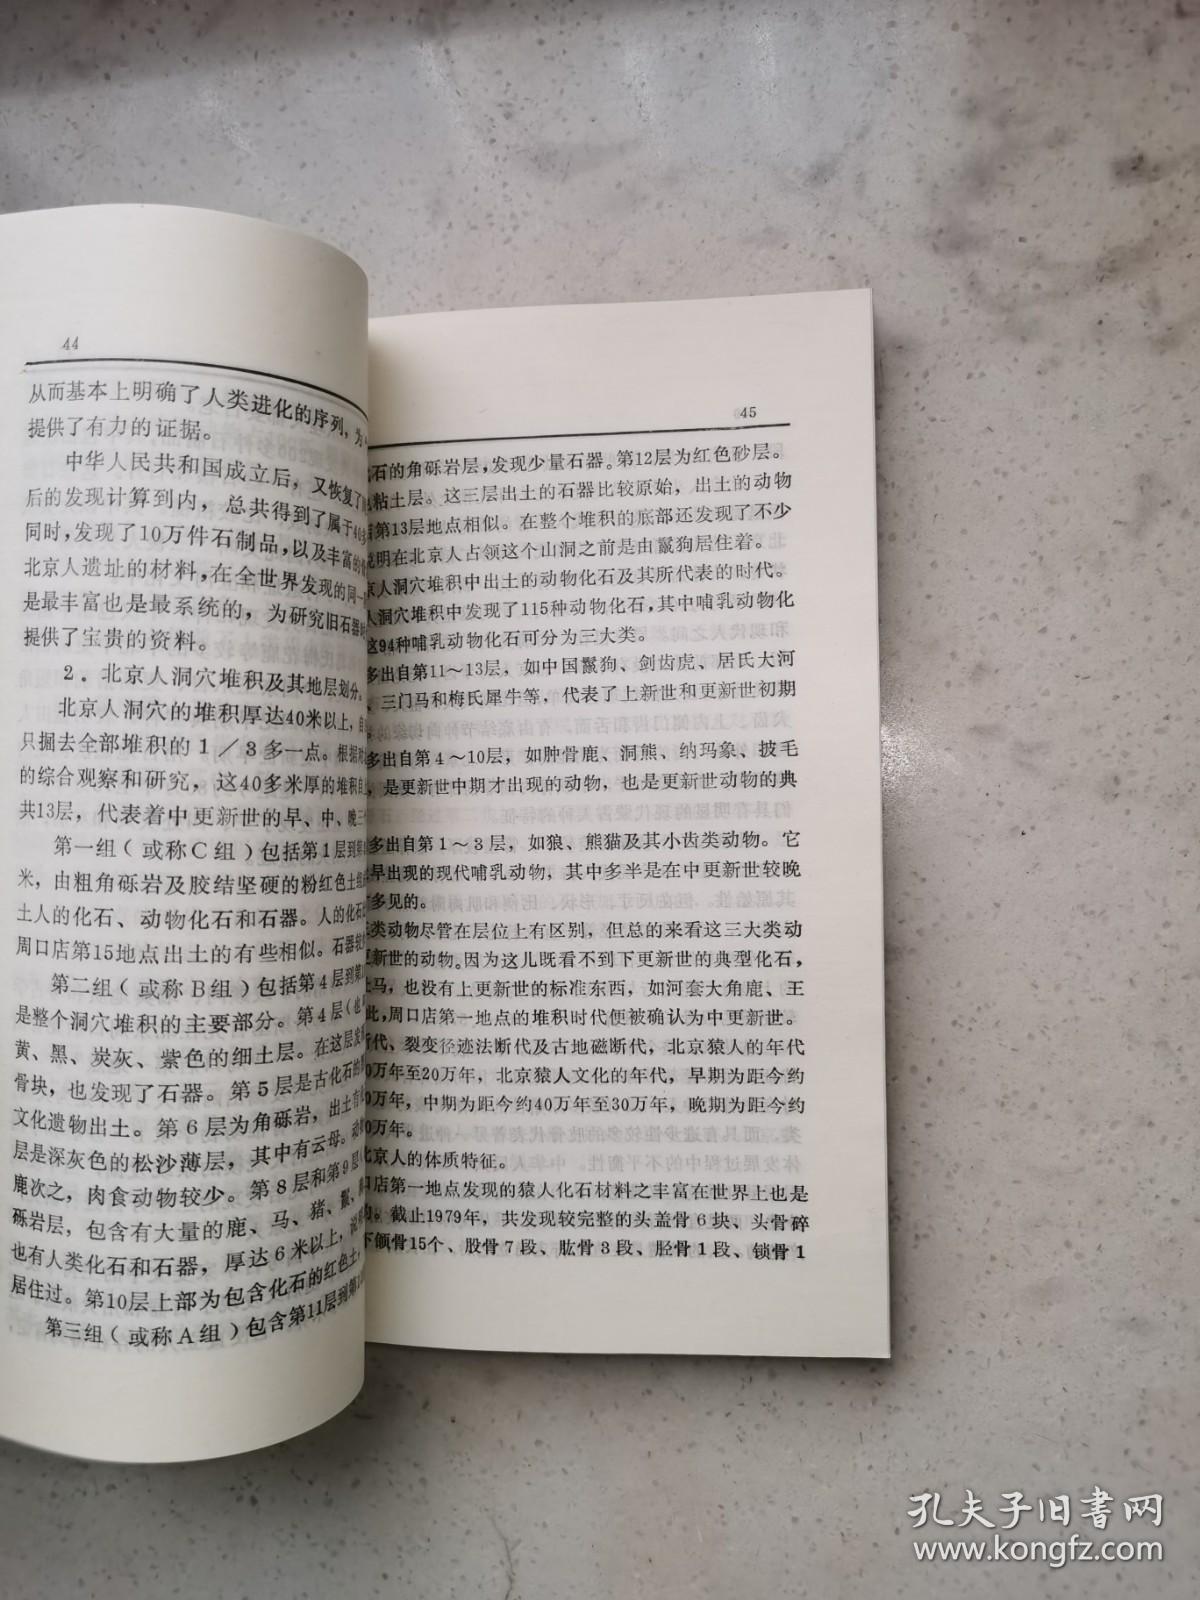 44
从而基本上明确了人类进化的序列,为
提供了有力的证据。
中华人民共和国成立后,又恢复了
后的发现计算到内,总共得到了属于40多
同时,发现了10万件石制品,以及丰富的
北京人遗址的材料,在全世界发现的同一
是最丰富也是最系统的,为研究旧石器
提供了宝贵的资料。
2.北京人洞穴堆积及其地层划分。
北京人洞穴的堆积厚达40米以上,自
只掘去全部堆积的1/3多一点。根据
的综合观察和研究,这40多米厚的堆积自
共13层,代表着中更新世的早、中、晚三
第一组(或称C组)包括第1层到
米,由粗角砾岩及胶结坚硬的粉红色土
土人的化石、动物化石和石器。人的化石
周口店第15地点出土的有些相似。石器
第二组(或称B组)包括第4层到第
是整个洞穴堆积的主要部分。第4层(也
黄、黑、炭灰、紫色的细土层。在这层发
骨块,也发现了石器。第5层是古化石的
文化遗物出土。第6层为角砾岩,出土
层是深灰色的松沙薄层,其中有云母。动
鹿次之,肉食动物较少。第8层和第9层
砾岩层,包含有大量的鹿、马、猪、
也有人类化石和石器,厚达6米以上,说
居住过。第10层上部为包含化石的红色土,
第三组(或称A组)包含第11层到第
45
石的角砾岩层,发现少量石器。第12层为红色砂层。
粘土层。这三层出土的石器比较原始,出土的动物
第13层地点相似。在整个堆积的底部还发现了不少
说明在北京人占领这个山洞之前是由鬣狗居住着。
京人洞穴堆积中出土的动物化石及其所代表的时代。
人洞穴堆积中发现了115种动物化石,其中哺乳动物化
这94种哺乳动物化石可分为三大类。
多出自第11～13层,如中国鬣狗、剑齿虎、居氏大河
、三门马和梅氏犀牛等,代表了上新世和更新世初期
多出自第4～10层,如肿骨鹿、洞熊、纳玛象、披毛
,是更新世中期才出现的动物,也是更新世动物的典
多出自第1～3层,如狼、熊猫及其小齿类动物。它
早出现的现代哺乳动物,其中多半是在中更新世较晚
多见的。
类动物尽管在层位上有区别,但总的来看这三大类动
更新世的动物。因为这儿既看不到下更新世的典型化石,
马,也没有上更新世的标准东西,如河套大角鹿、王
此,周口店第一地点的堆积时代便被确认为中更新世。
断代、裂变径迹法断代及古地磁断代,北京猿人的年代
0万年至20万年,北京猿人文化的年代,早期为距今约
0万年,中期为距今约40万年至30万年,晚期为距今约
0万年。
北京人的体质特征。
口店第一地点发现的猿人化石材料之丰富在世界上也是
。截止1979年,共发现较完整的头盖骨6块、头骨碎
下颌骨15个、股骨7段、肱骨3段、胫骨1段、锁骨1
孔夫子旧书网
www.kongfz.com